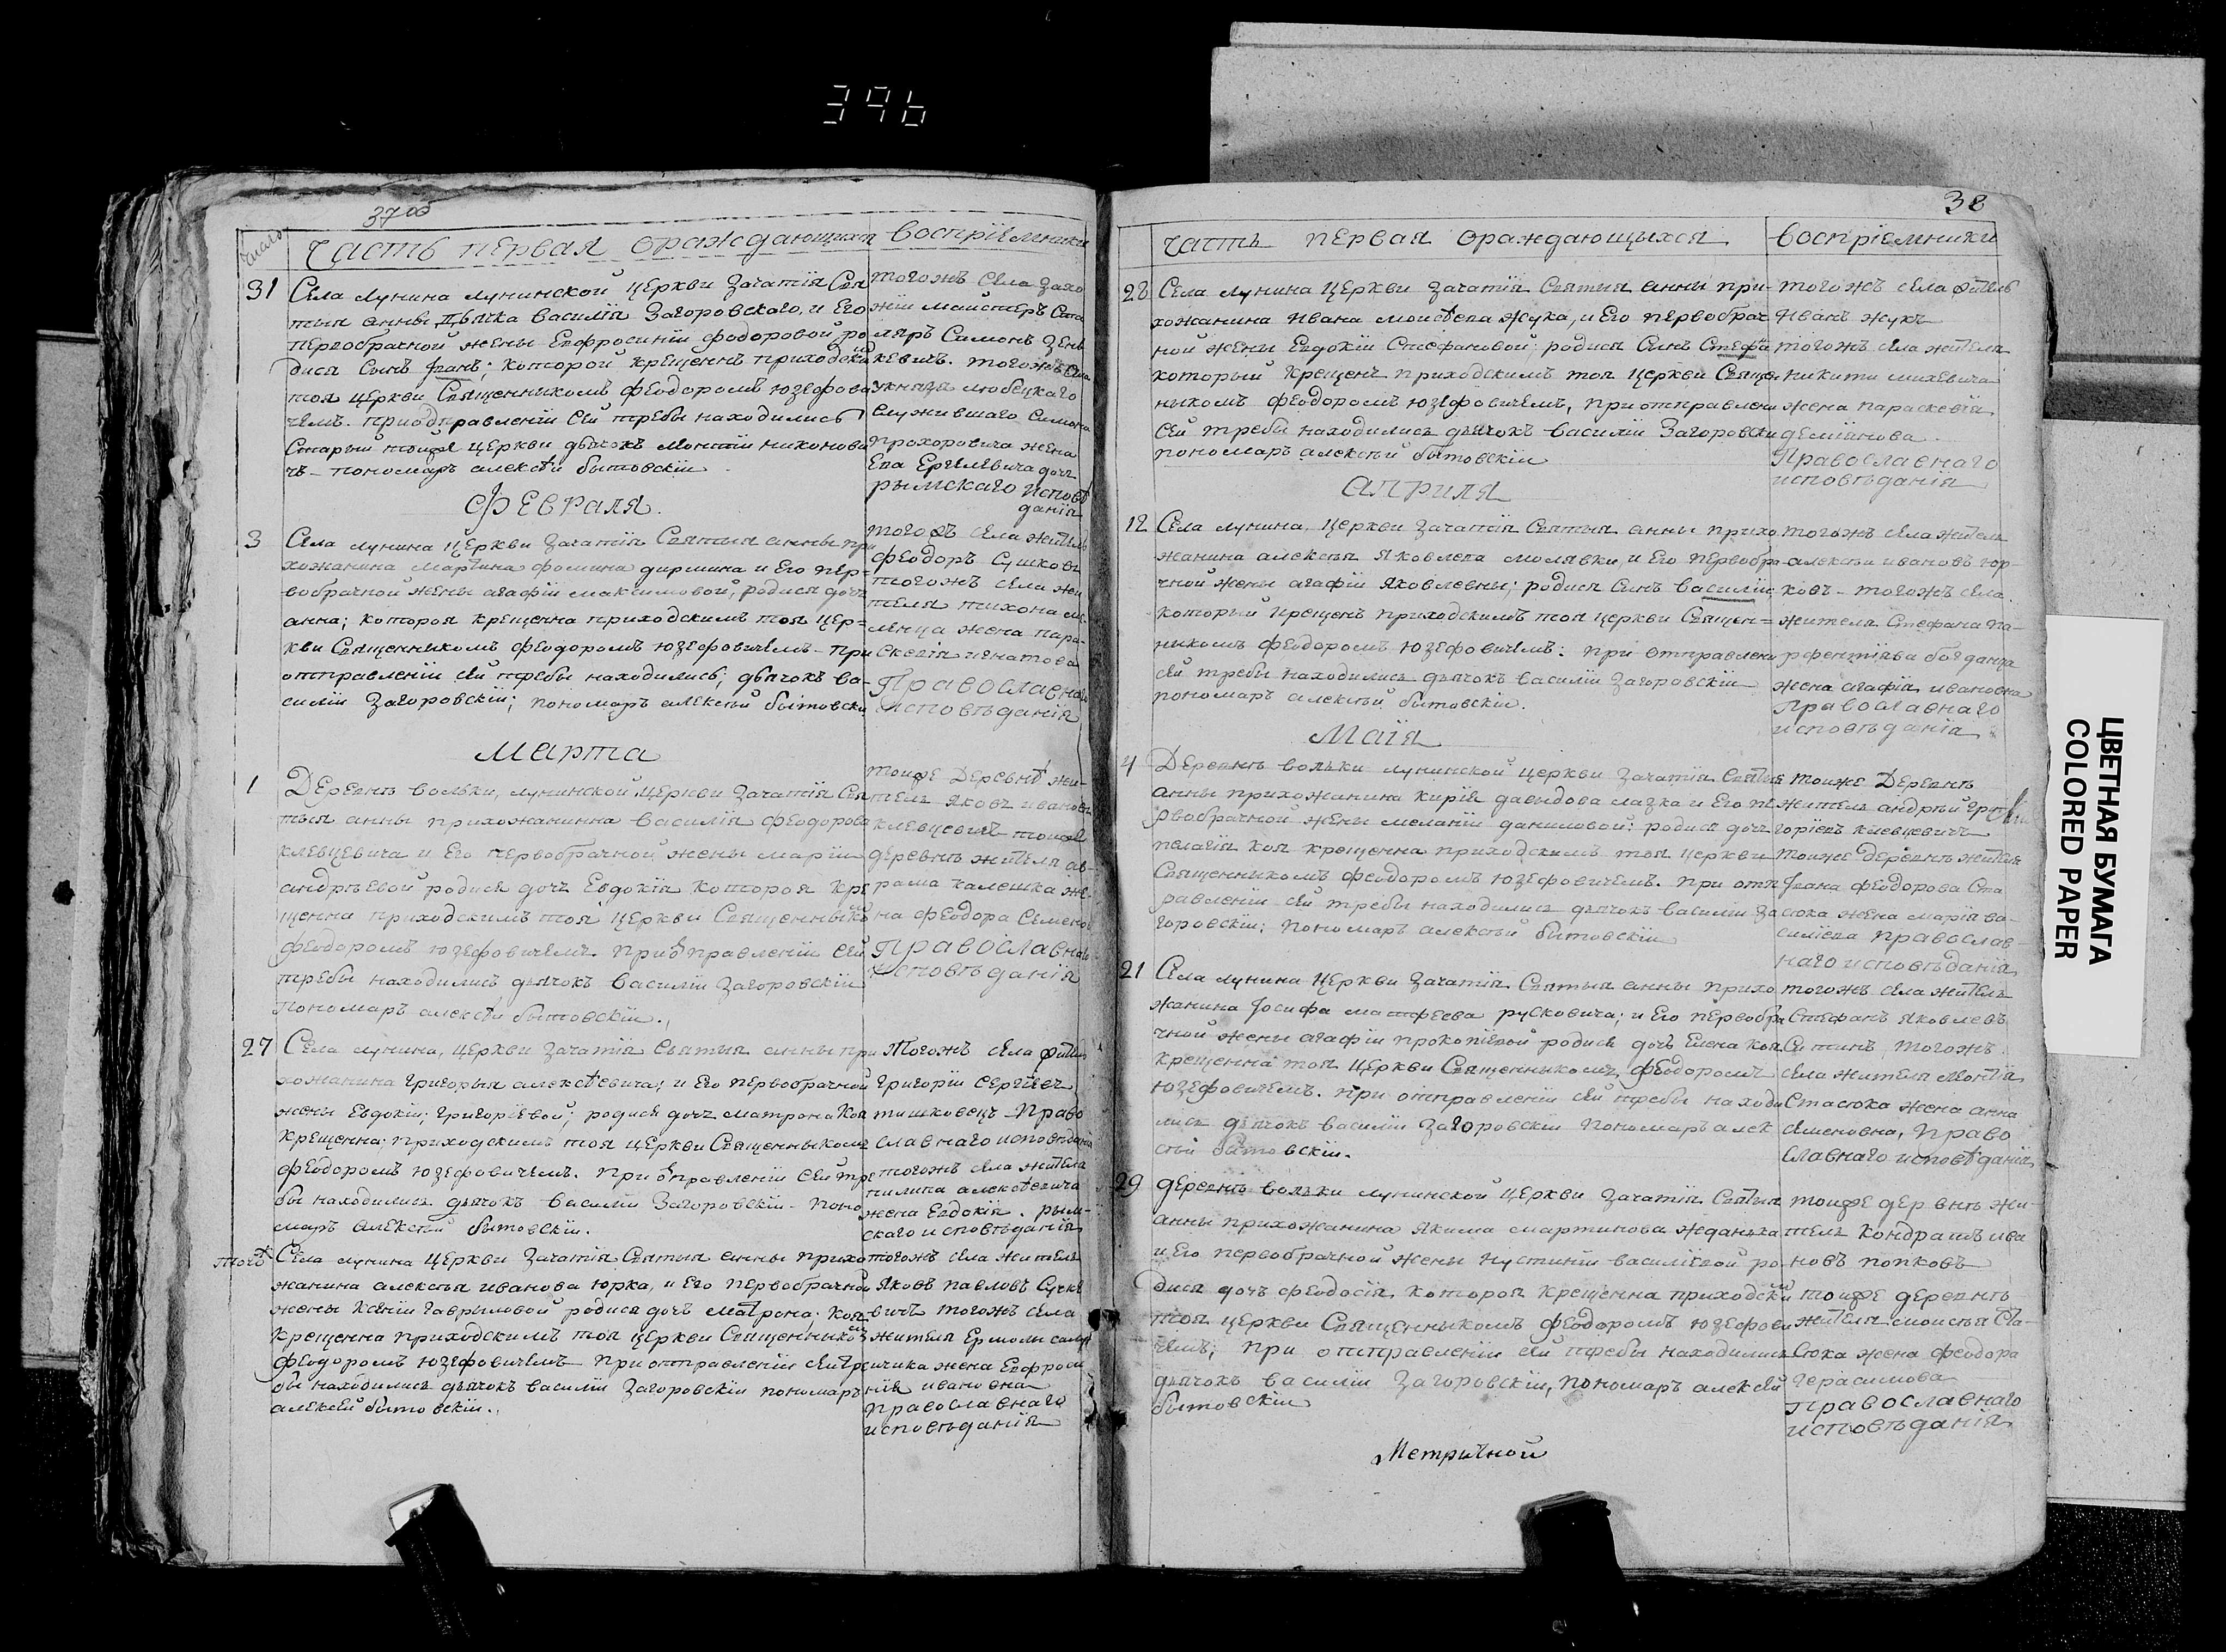 396
37об
число
Часть первая ораждающихся
воспріемники
31
Села Лунина Лунинской церкви Зачатія Свя
тыя анны Дьячка василія Загоровскаго, и Его
первобрачной жены Евфросиніи федоровой, ро
дися Сынъ Іоанъ; которой крещенъ приходским
тоя церкви Священникомъ феодоромъ юзефови
чемъ. при отправленіи Сей требы находились
Старый тоя же церкви дьячокъ Монтій никонови
чъ - пономаръ алексѣй бытовскіи
тогожъ Села захо
жіи маистеръ Сто
ляръ Симонъ Зень
кевичъ. тогожъ Села
князя любецкаго
Служившаго Симона
прохоровича жена
Ева доча
рымскаго исповѣ
данія
Февраля.
3
Села лунина церкви Зачатія Святыя анны при
хожанина Мартина фомина дирмина и Его пер=
вобрачной жены агафіи максимовой, родися доча
анна; которая крещенна приходскимъ тоя цер=
кви Священникомъ феодоромъ юзефовичемъ - при
отправленіи сей требы находились; дьячокъ ва-
силіи Загоровскіи; пономаръ алексѣй бытовски
тогожъ села житель
феодоръ Сушковъ
тогожъ села жи
теля тихона
жена пара-
скевія игнатова
Православнаго
исповѣданія
Марта
1
Деревнѣ вольки, лунинской церкви Зачатія Свя
тыя анны прихожанина василія феодорова
клевцевича и Его первобрачной жены маріи
андрѣевой родися доча Евдокія которая кре
щенна приходскимъ тоя церкви Священникомъ
феодоромъ юзефовичемъ. При отправленіи сей
требы находились дьячокъ василіи Загоровскіи
Пономаръ алексѣй бытовскіи.
тоиже деревнѣ жи-
тель яковъ ивановъ
клевцевичъ тоиже
деревнѣ жителя ав-
рама калешка же
на феодора Семенова
Православнаго
исповѣданія
27
Села лунина, церкви Зачатія Святыя анны при
хожанина григорыя алексѣевича; и Его первобрачной
жены Евдокіи; григоріевой; родися доча матрона коя
крещенна; приходскимъ тоя церкви Священникомъ
феодоромъ юзефовичемъ. При отправленіи сей тре
бы находились дьячокъ василіи Загоровскіи - поно
маръ алексѣй бытовскіи.
Тогожъ села житель
григоріи Сергіевъ
тишковецъ - Право
славнаго исповѣданія
тогожъ села жителя
пилипа алексѣевича
жена Евдокія. рым-
скаго исповѣданія
того
Села лунина церкви Зачатія Святыя анны прихо
жанина алексѣя иванова юрка, и Его первобрачной
жены ксеніи гаврыловой родися дочъ матрона; коя
крещенна приходскимъ тоя церкви Священникомъ
феодоромъ юзефовичемъ при отправленіи сей тре
бы находились дьячокъ василіи Загоровскіи пономаръ
алексѣй бытовскіи.
тогожъ села житель
яковъ павловъ Сучке
вичъ тогожъ села
жителя Ермолы
жена Евфроси
нія ивановна
православнаго
исповѣданія
38
часть первая ораждающыхся
воспріемники
28
Села лунина церкви Зачатія Святыя анны при-
хожанина ивана моисѣева жука, и Его первобрач
ной жены Евдокіи Стефановой; родися Сынъ Стефа
который крещенъ приходскимъ тоя церкви Священ
никомъ феодоромъ юзефовичемъ, при отправлени
сей требы находились дьячокъ василіи Загоровски
пономаръ алексѣй бытовскіи
тогожъ села житель
иванъ жукъ
тогожъ села жителя
никиты михевича
жена параскевія
деміянова.
Православнаго
исповѣданія
априля
12
Села лунина, церкви Зачатія Святыя анны прихо
жанина алексѣя яковлева молявки, и Его первобра
чной жены агафіи яковлевны; родися Сынъ василіи;
который крещенъ приходскимъ тоя церкви Священ=
никомъ феодоромъ юзефовичемъ: при отправлени
сей требы находились дьячокъ василіи Загоровскіи
пономаръ алексѣй бытовскіи.
тогожъ села жители
алексѣи ивановъ юр-
ковъ - тогожъ села
жителя Стефана па-
рфентіева богданца
жена агафія ивановна
Православнаго
исповѣданія
Маія
4
Деревнѣ вольки лунинской церкви Зачатія Святыя
анны прихожанина кирія давыдова лазка и Его пе
рвобрачной жены меланіи даниловой: родися доча
пелагія коя крещенна приходскимъ тоя церкви
Священникомъ феодоромъ юзефовичемъ. при отп
равленіи сей требы находились дьячокъ василіи За
горовскіи; пономаръ алексѣй бытовскіи
тоиже Деревнѣ
житель андрѣй гри
горіевъ клевцевичъ
тоиже деревнѣ жителя
Іоана феодорова Ста
сюка жена марія ва-
силіева православ-
наго исповѣданія
21
Села лунина церкви Зачатія Святыя анны прихо
жанина Іосифа матфеева русковича; и Его первобра
чной жены агафіи прокопіевой родися дочъ Елена коя
крещенна тоя церкви Священникомъ феодоромъ
юзефовичемъ. при отправленіи сей требы находи
лись дьячокъ василіи Загоровскіи пономаръ алек
сѣй бытовскіи.
тогожъ села житель
Стефанъ яковлевъ
Ситинъ тогожъ
села жителя Монтія
Стасюка жена анна
Семеновна, право
славнаго исповѣданія
29
деревнѣ вольки лунинской церкви Зачатія Святыя
анны прихожанина якима мартинова жданька
и Его первобрачной жены иустиніи василіевой ро
дися дочъ феодосія которая крещенна приходским
тоя церкви Священникомъ феодоромъ юзефови
чемъ; при отправленіи сей требы находились
дьячокъ василіи Загоровскіи, пономаръ алексѣй
бытовскіи
тоиже деревнѣ жи-
тель кондратъ ива
новъ попковъ
тоиже деревнѣ
жителя моисѣя Ста-
сюка жена феодора
герасимова
православнаго
исповѣданія
Метричной
ЦВЕТНАЯ БУМАГА
COLORED PAPER